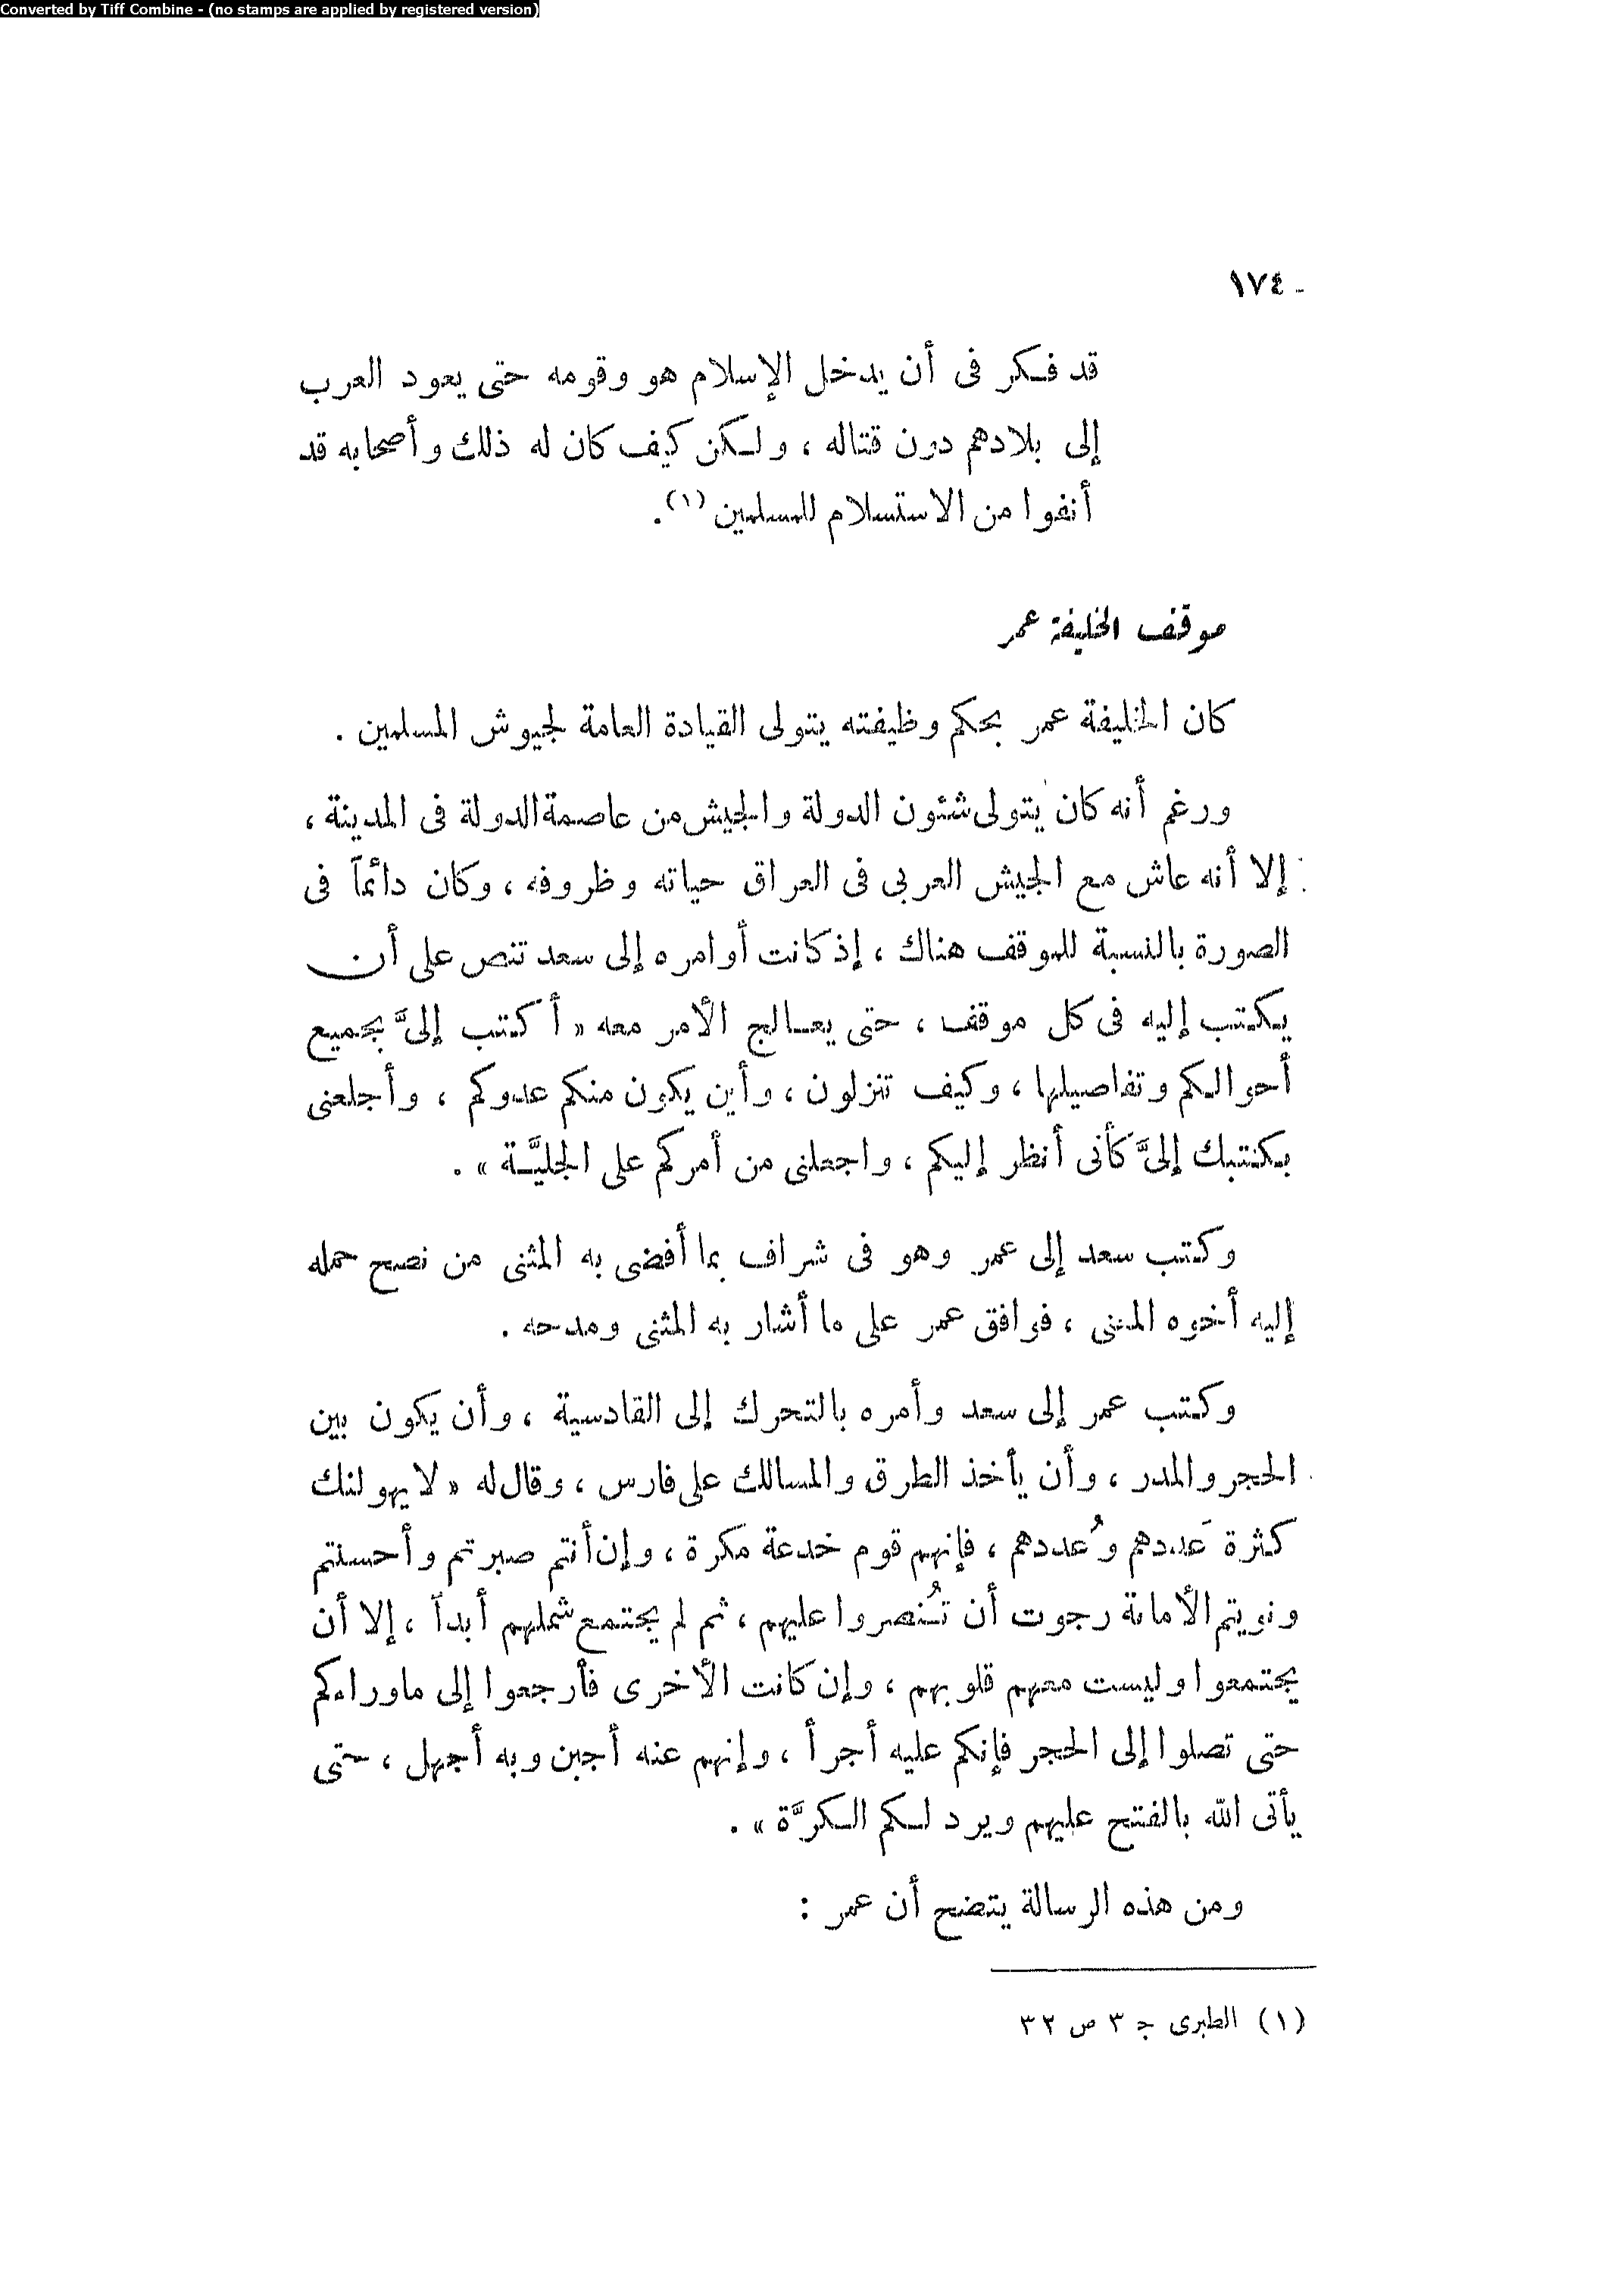 Converted by Tiff Combine - (no stamps are applied by registered version)
- ١٧٤
قد فكر فى أن يدخل الإسلام هو وقومه حتى يعود العرب
إلى بلادهم دون قتاله ، ولكن كيف كان له ذلك وأصحابه قد
أنفوا من الاستسلام للمسلمين (١).
موقف الخليفة عمر
كان الخليفة عمر بحكم وظيفته يتولى القيادة العامة لجيوش المسلمين .
ورغم أنه كان يتولى شئون الدولة والجيش من عاصمة الدولة فى المدينة ،
إلا أنه عاش مع الجيش العربى فى العراق حياته وظروفه ، وكان دائماً فى
الصورة بالنسبة للموقف هناك ، إذ كانت أوامره إلى سعد تنص على أن
يكتب إليه فى كل موقف ، حتى يعالج الأمر معه « أكتب إلىَّ بجميع
أحوالكم وتفاصيلها ، وكيف تنزلون ، وأين يكون منكم عدوكم ، وأجلعنى
بكتبك إلىَّ كأنى أنظر إليكم ، واجعلنى من أمركم على الجليَّة » .
وكتب سعد إلى عمر وهو فى شراف بما أفضى به المثنى من نصح حمله
إليه أخوه المثنى ، فوافق عمر على ما أشار به المثنى ومدحه .
وكتب عمر إلى سعد وأمره بالتحرك إلى القادسية ، وأن يكون بين
الحجر والمدر ، وأن يأخذ الطرق والمسالك على فارس ، وقال له « لا يهولنك
كثرة عَددهم وعُددهم ، فإنهم قوم خدعة مكرة ، وإن أنتم صبرتم وأحسنتم
ونويتم الأمانة رجوت أن تُنصروا عليهم ، ثم لم يجتمع شملهم أبداً ، إلا أن
يجتمعوا وليست معهم قلوبهم ، وإن كانت الأخرى فأرجعوا إلى ماوراءكم
حتى تصلوا إلى الحجر فإنكم عليه أجرأ ، وإنهم عنه أجبن وبه أجهل ، حتى
يأتى الله بالفتح عليهم ويرد لكم الكرَّة » .
ومن هذه الرسالة يتضح أن عمر :
(١) الطبرى ج ٣ ص ٣٢